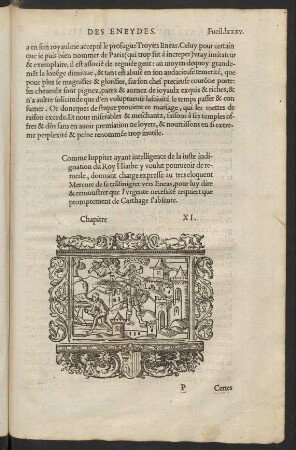 DES ENEYDES. Fueil.lxxxv.
a en son royaulme accepté le profugue Troyen Eneas. Celuy pour certain
que ie puis bien nommer de Paris (qui trop fut à increper) vray imitateur
& exemplaire, il est associé de regnicie gent: au moyen dequoy grande-
ment la louége diminue, & tant est abusé en son audacieuse temerité, que
pour plus se magnifier & glorifier, sur son chef precieuse couróne porte:
ses cheueulx sont pignez, parez & aornez de ioyaulx exquis & riches, &
n'a aultre solicitude que d'en voluptueuse lasciuité le temps passer & con
sumer. O
mes de
raison excede. Et nous miserables & meschantz, faisons à ses temples of-
fres & dós sans en auoir premiation ne loyers, & nourrissons en sa extre-
me perplexité & peine renommée trop inutile.
Comme Iuppiter ayant intelligence de la iuste indi
gnation du Roy Hiarbe y voulut pourueoir de re-
mede, donnant charge expresse au tres eloquent
Mercure de se trásmigrer vers Eneas, pour luy dire
& remonstrer que l'vrgente necessité requiert que
promptement de Carthage s'absente.
Chapitre XI.
P Certes